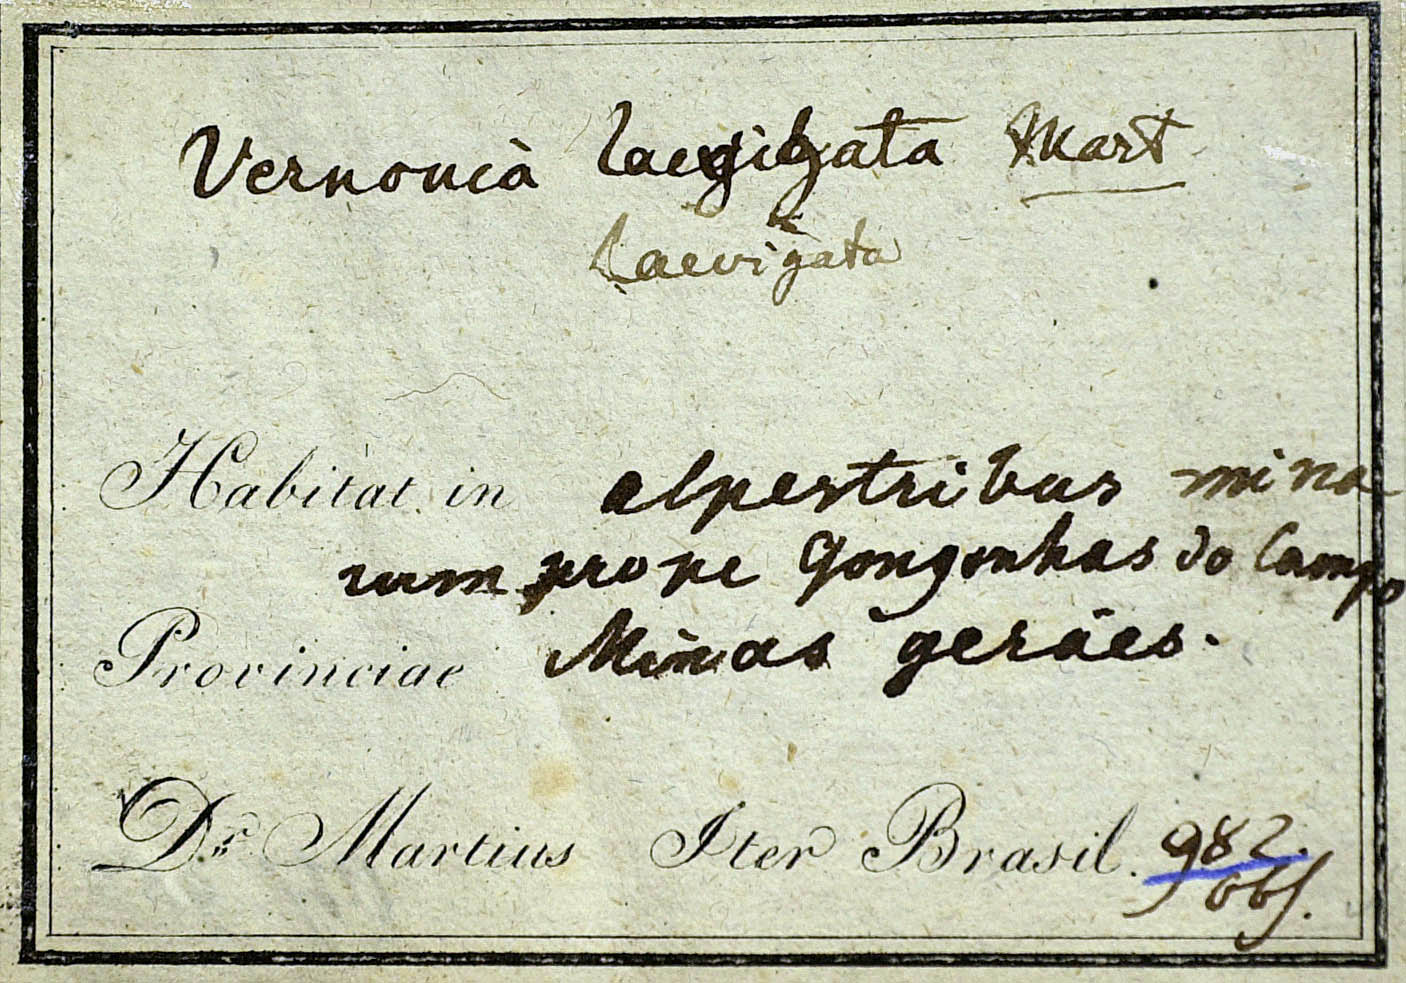 Vernonia laevigata Mart
laevigata
Habitat in alpestribus mina
rum prope Gongonhas do Campo
Provinciae Minas gerães.
Dr. Martius Iter Brasil. 982.
obs.